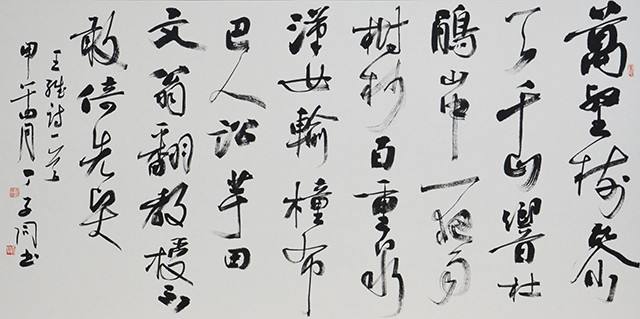 萬壑樹參
天千山響杜
鵑山中一夜雨
樹杪百重泉
漢女輸橦布
巴人訟芋田
文翁翻教授不
敢倚先賢
王維詩一首
甲午四月丁子書